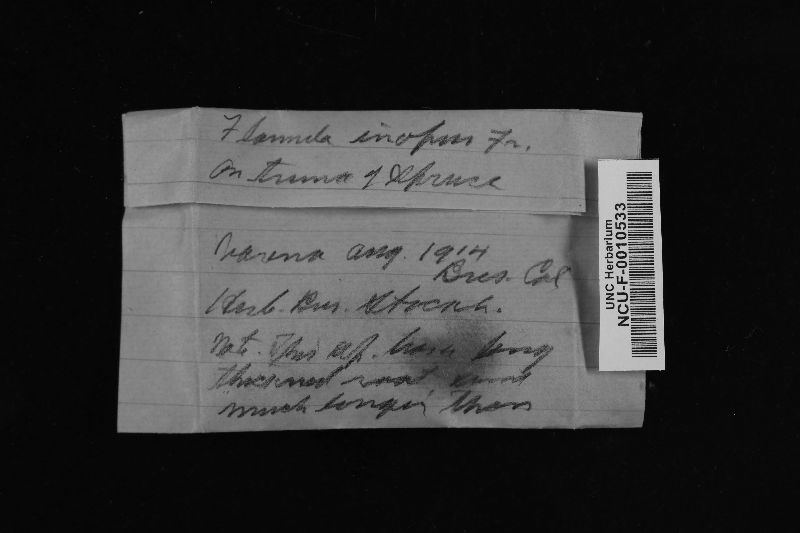 Flammula inopus Fr.
on trunk of spruce
aug. 1914
Bres. Col
Herb. Bres. Stockh.
Note. This sp. has a long
root
much longer than
UNC Herbarium
NCU-F-0010533